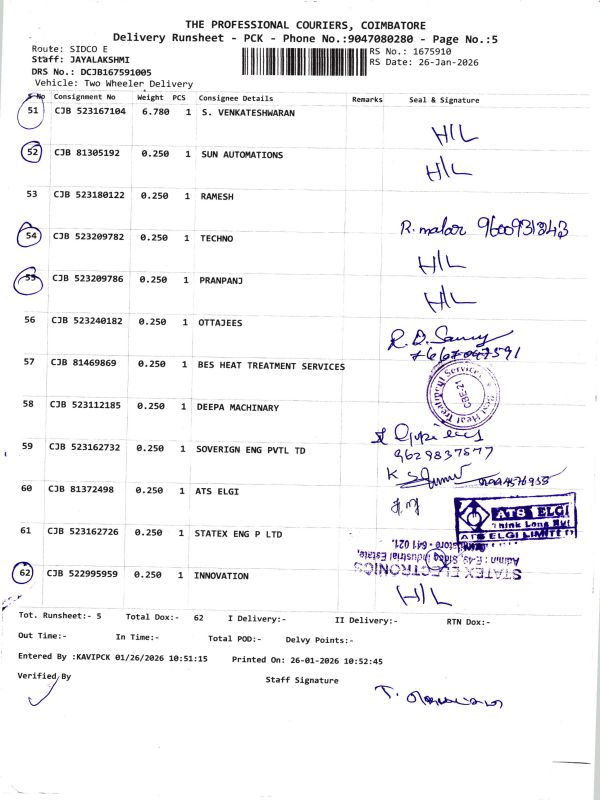 THE PROFESSIONAL COURIERS, COIMBATORE
Delivery Runsheet - PCK - Phone No.:9047080280 - Page No.:5
Route: SIDCO E RS No.: 1675910
Staff: JAYALAKSHMI RS Date: 26-Jan-2026
DRS No.: DCJB167591005
Vehicle: Two Wheeler Delivery
S No Consignment No Weight PCS Consignee Details Remarks Seal & Signature
51 CJB 523167104 6.780 1 S. VENKATESHWARAN
H/L
52 CJB 81305192 0.250 1 SUN AUTOMATIONS H/L
53 CJB 523180122 0.250 1 RAMESH
R. malar 9600931843
54 CJB 523209782 0.250 1 TECHNO
H/L
55 CJB 523209786 0.250 1 PRANPANJ
H/L
56 CJB 523240182 0.250 1 OTTAJEES
7667047591
57 CJB 81469869 0.250 1 BES HEAT TREATMENT SERVICES
Best Heat Treatment Services
CBE-21
58 CJB 523112185 0.250 1 DEEPA MACHINARY
59 CJB 523162732 0.250 1 SOVERIGN ENG PVTL TD
9629837577
60 CJB 81372498 0.250 1 ATS ELGI
ATS ELGI
Think Long
ATS ELGI LIMITED
61 CJB 523162726 0.250 1 STATEX ENG P LTD
STATEX ELECTRONICS
Admin : E-49, Sidco Industrial Estate,
Coimbatore - 641 021.
62 CJB 522995959 0.250 1 INNOVATION
H/L
Tot. Runsheet:- 5 Total Dox:- 62 I Delivery:- II Delivery:- RTN Dox:-
Out Time:- In Time:- Total POD:- Delvy Points:-
Entered By :KAVIPCK 01/26/2026 10:51:15 Printed On: 26-01-2026 10:52:45
Verified By Staff Signature